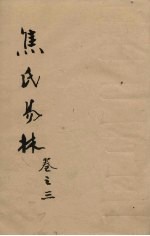 焦氏易林
卷之三